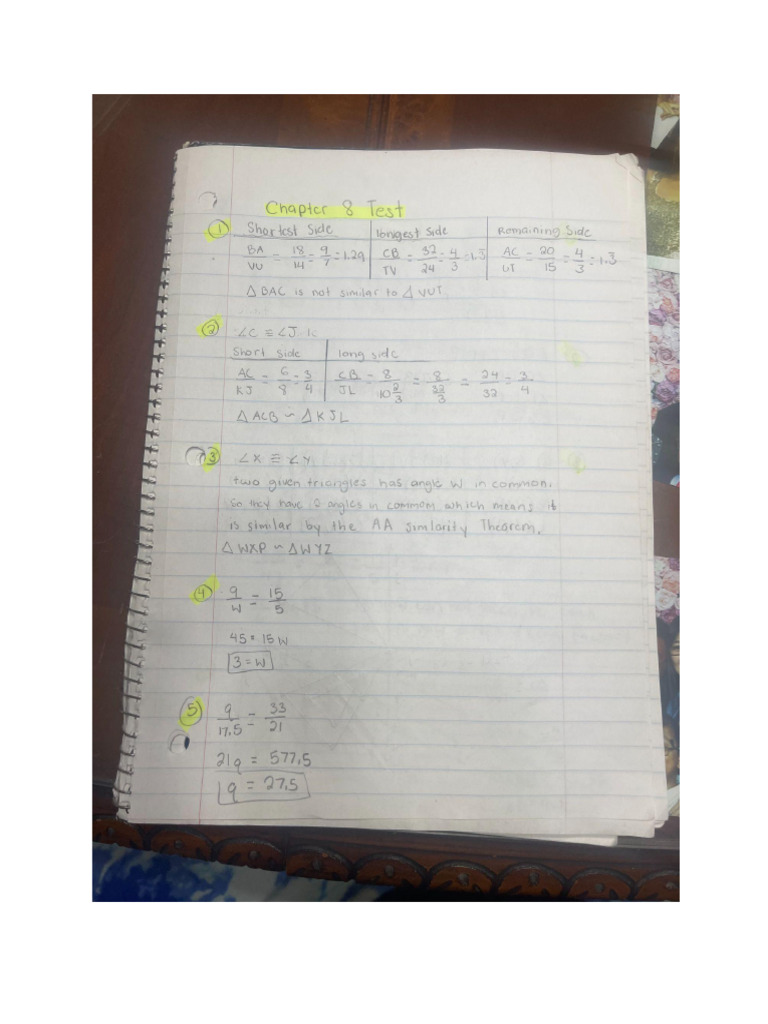 Chapter 8 Test
① Shortest Side | longest side | Remaining Side
BA/VU = 18/14 = 9/7 = 1.29 | CB/TV = 32/24 = 4/3 = 1.3̅ | AC/UT = 20/15 = 4/3 = 1.3̅
△ BAC is not similar to △ VUT
② ∠C ≅ ∠J
Short side | long side
AC/KJ = 6/8 = 3/4 | CB/JL = 8/10 2/3 = 8/(32/3) = 24/32 = 3/4
△ ACB ~ △ KJL
③ ∠X ≅ ∠Y
two given triangles has angle W in common.
So they have 2 angles in common which means it
is similar by the AA simlarity Theorem.
△ WXP ~ △WYZ
④ 9/w = 15/5
45 = 15w
3 = w
⑤ q/17.5 = 33/21
21q = 577.5
q = 27.5